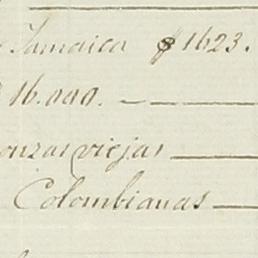 Jamaica $ 1623.
16.000. —
onzas viejas
Colombianas